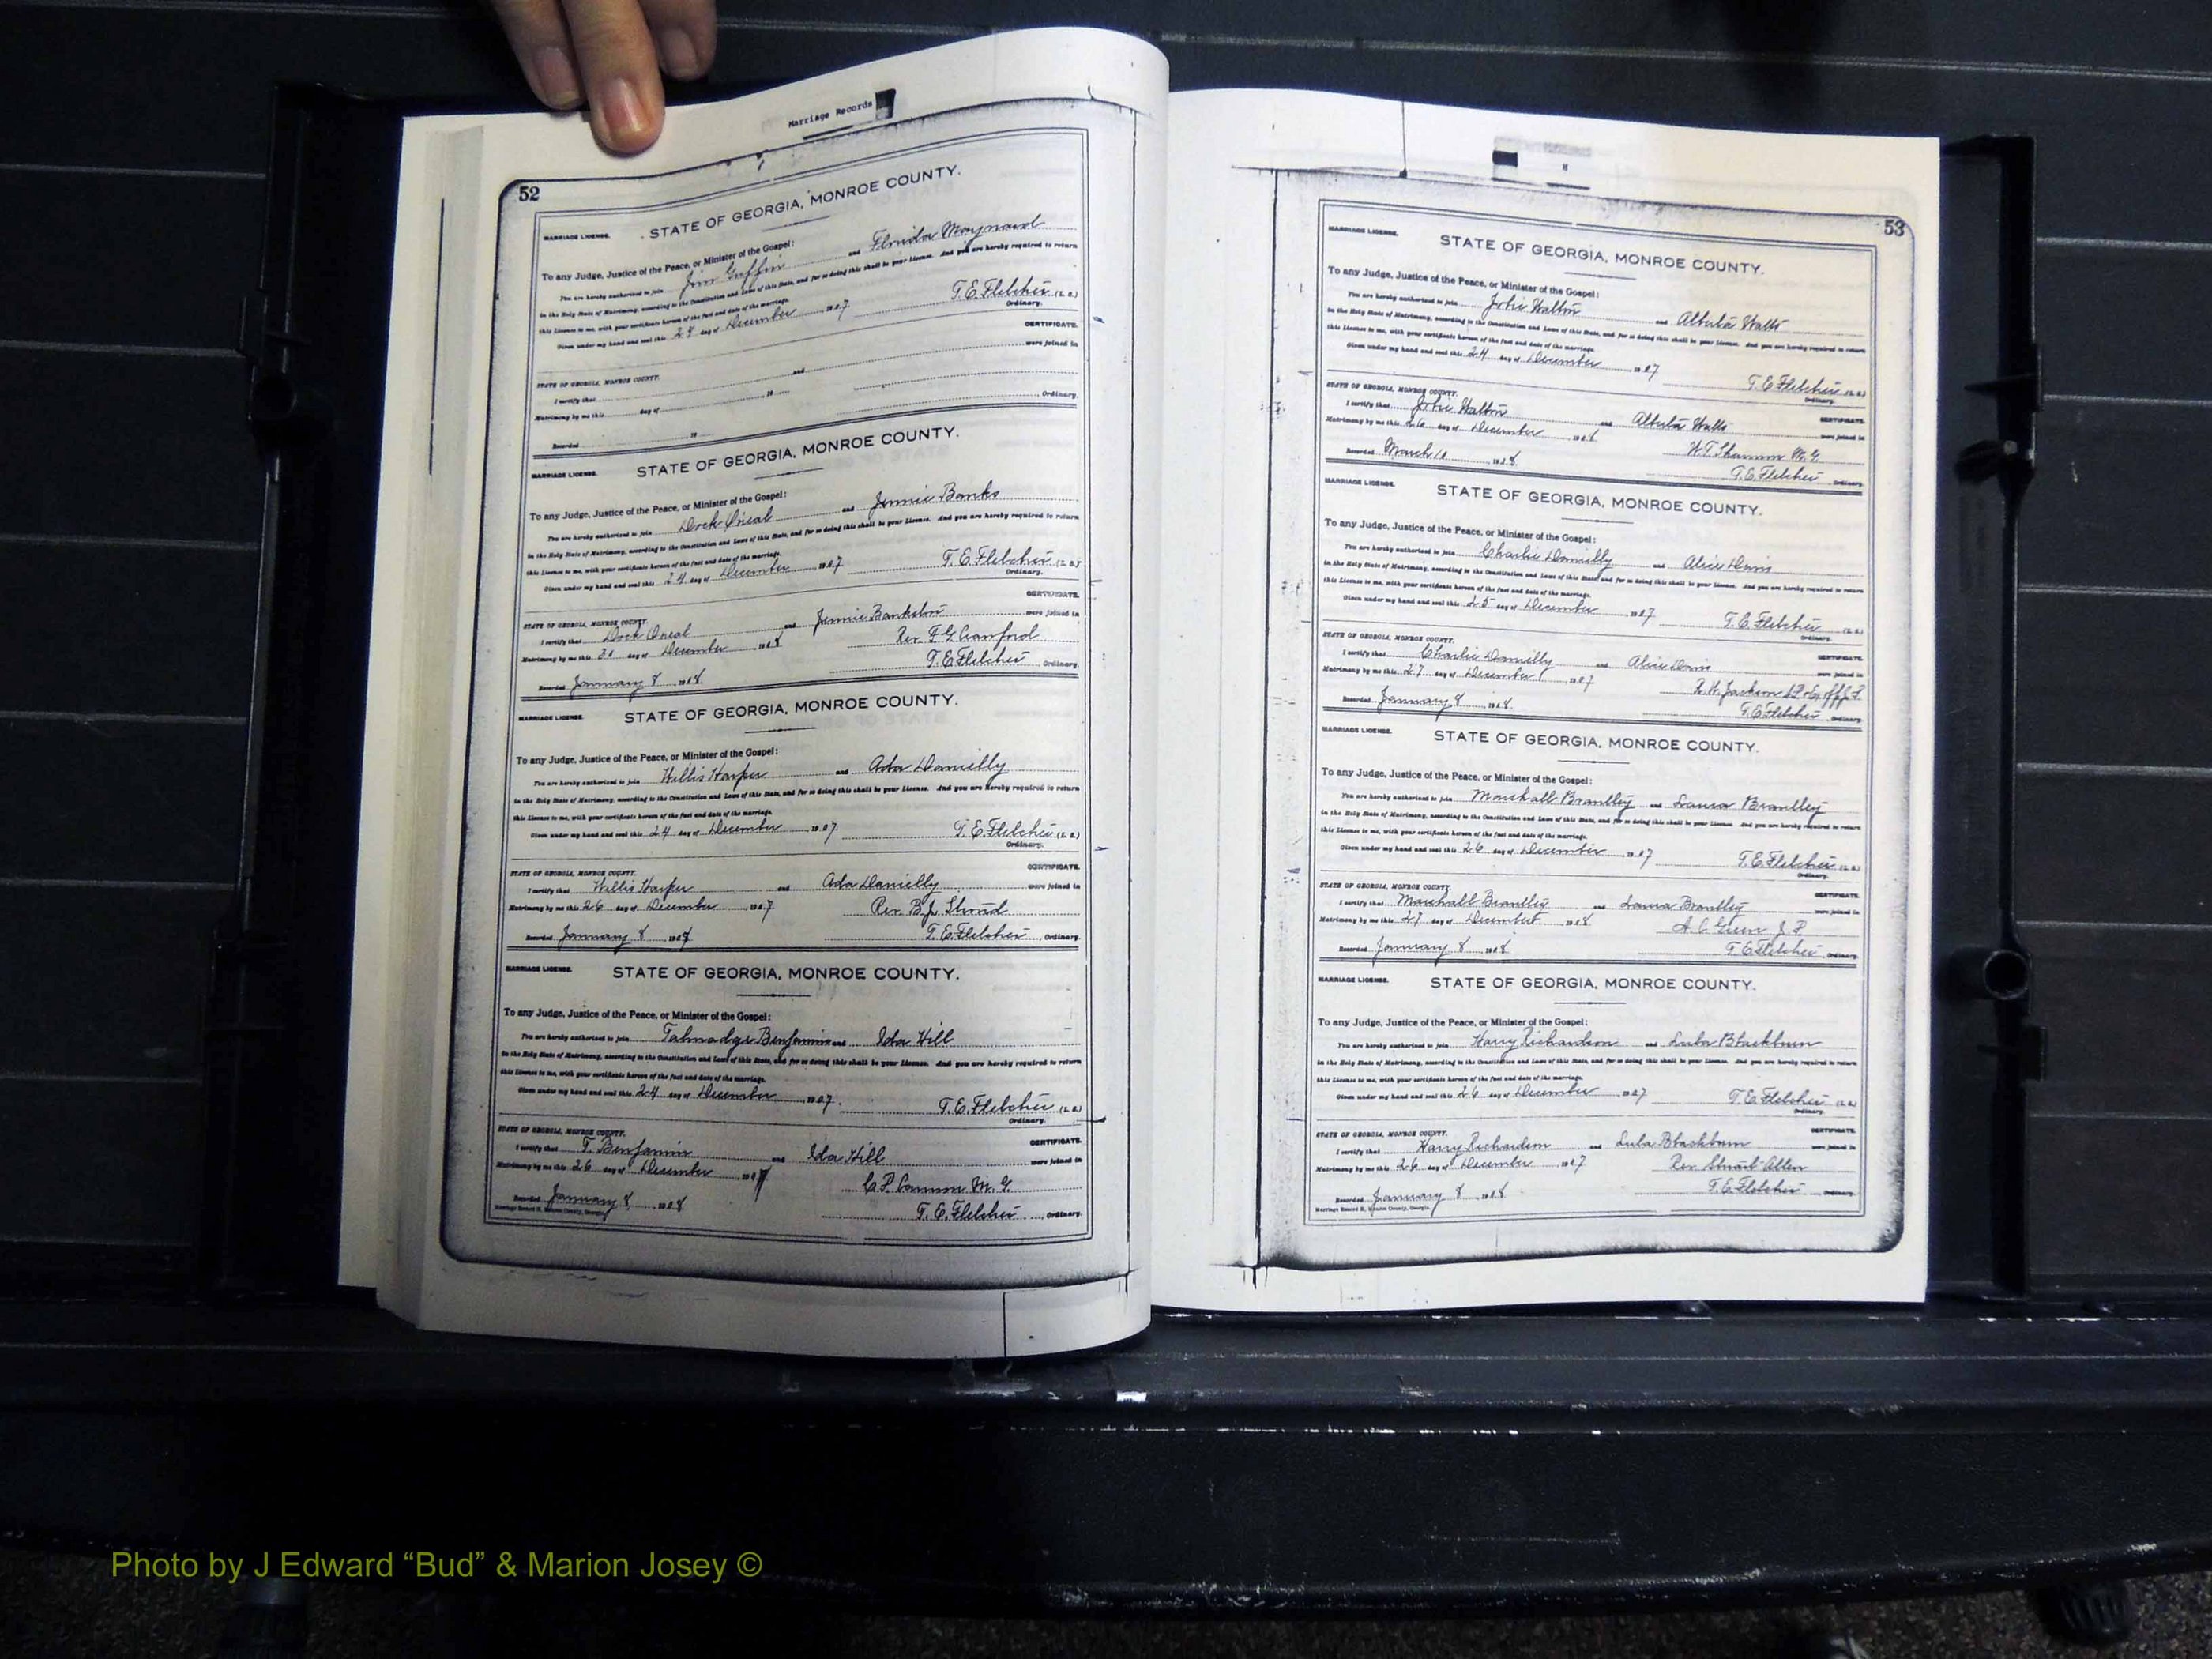 Marriage Records
52
MARRIAGE LICENSE. STATE OF GEORGIA, MONROE COUNTY.
To any Judge, Justice of the Peace, or Minister of the Gospel:
You are hereby authorized to join Jim Guffin and Florida Maynard
in the Holy State of Matrimony, according to the Constitution and Laws of this State, and for so doing this shall be your License. And you are hereby required to return
this License to me, with your certificate hereon of the fact and date of the marriage.
Given under my hand and seal this day of December 1907 T. E. Fletcher (L. S.)
Ordinary.
STATE OF GEORGIA, MONROE COUNTY. CERTIFICATE.
I certify that and were joined in
Matrimony by me this day of 19
Recorded 19 Ordinary.
MARRIAGE LICENSE. STATE OF GEORGIA, MONROE COUNTY.
To any Judge, Justice of the Peace, or Minister of the Gospel:
You are hereby authorized to join Dock Oneal and Jennie Banks
in the Holy State of Matrimony, according to the Constitution and Laws of this State, and for so doing this shall be your License. And you are hereby required to return
this License to me, with your certificate hereon of the fact and date of the marriage.
Given under my hand and seal this 24 day of December 1907 T. E. Fletcher (L. S.)
Ordinary.
STATE OF GEORGIA, MONROE COUNTY. CERTIFICATE.
I certify that Dock Oneal and Jennie Bankston were joined in
Matrimony by me this 31 day of December 1908 Rev. F. G. Crawford
Recorded January 8 1908 T. E. Fletcher, Ordinary.
MARRIAGE LICENSE. STATE OF GEORGIA, MONROE COUNTY.
To any Judge, Justice of the Peace, or Minister of the Gospel:
You are hereby authorized to join Willis Harper and Ada Danielly
in the Holy State of Matrimony, according to the Constitution and Laws of this State, and for so doing this shall be your License. And you are hereby required to return
this License to me, with your certificate hereon of the fact and date of the marriage.
Given under my hand and seal this 24 day of December 1907 T. E. Fletcher (L. S.)
Ordinary.
STATE OF GEORGIA, MONROE COUNTY. CERTIFICATE.
I certify that Willis Harper and Ada Danielly were joined in
Matrimony by me this 26 day of December 1907 Rev. B. J. Stroud
Recorded January 8 1908 T. E. Fletcher, Ordinary.
MARRIAGE LICENSE. STATE OF GEORGIA, MONROE COUNTY.
To any Judge, Justice of the Peace, or Minister of the Gospel:
You are hereby authorized to join Talmadge Benjamin and Ida Hill
in the Holy State of Matrimony, according to the Constitution and Laws of this State, and for so doing this shall be your License. And you are hereby required to return
this License to me, with your certificate hereon of the fact and date of the marriage.
Given under my hand and seal this 24 day of December 1907. T. E. Fletcher (L. S.)
Ordinary.
STATE OF GEORGIA, MONROE COUNTY. CERTIFICATE.
I certify that T. Benjamin and Ida Hill were joined in
Matrimony by me this 26 day of December 1907 C. P. Cannon M. G.
Recorded January 8 1908 T. E. Fletcher, Ordinary.
Marriage Record H, Monroe County, Georgia.
53
MARRIAGE LICENSE. STATE OF GEORGIA, MONROE COUNTY.
To any Judge, Justice of the Peace, or Minister of the Gospel:
You are hereby authorized to join John Walton and Alberta Watts
in the Holy State of Matrimony, according to the Constitution and Laws of this State, and for so doing this shall be your License. And you are hereby required to return
this License to me, with your certificate hereon of the fact and date of the marriage.
Given under my hand and seal this 24 day of December 1907
T. E. Fletcher (L. S.)
Ordinary.
STATE OF GEORGIA, MONROE COUNTY. CERTIFICATE.
I certify that Walton and Alberta Watts were joined in
Matrimony by me this 26 day of December 1908 W. T. M. G.
Recorded March 10 1908 T. E. Fletcher, Ordinary.
MARRIAGE LICENSE. STATE OF GEORGIA, MONROE COUNTY.
To any Judge, Justice of the Peace, or Minister of the Gospel:
You are hereby authorized to join Charlie Danielly and Alice Davis
in the Holy State of Matrimony, according to the Constitution and Laws of this State, and for so doing this shall be your License. And you are hereby required to return
this License to me, with your certificate hereon of the fact and date of the marriage.
Given under my hand and seal this 25 day of December 1907 T. E. Fletcher (L. S.)
Ordinary.
STATE OF GEORGIA, MONROE COUNTY. CERTIFICATE.
I certify that Charlie Danielly and Alice Davis were joined in
Matrimony by me this 27 day of December 1907 R. W. Jackson
Recorded January 8 1908. T. E. Fletcher, Ordinary.
MARRIAGE LICENSE. STATE OF GEORGIA, MONROE COUNTY.
To any Judge, Justice of the Peace, or Minister of the Gospel:
You are hereby authorized to join Marshall Brantley and Laura Brantley
in the Holy State of Matrimony, according to the Constitution and Laws of this State, and for so doing this shall be your License. And you are hereby required to return
this License to me, with your certificate hereon of the fact and date of the marriage.
Given under my hand and seal this 26 day of December 1907 T. E. Fletcher (L. S.)
Ordinary.
STATE OF GEORGIA, MONROE COUNTY. CERTIFICATE.
I certify that Marshall Brantley and Laura Brantley were joined in
Matrimony by me this 27 day of December 1908 A. C. Green J. P.
Recorded January 8 1908 T. E. Fletcher, Ordinary.
MARRIAGE LICENSE. STATE OF GEORGIA, MONROE COUNTY.
To any Judge, Justice of the Peace, or Minister of the Gospel:
You are hereby authorized to join Harry Richardson and Lula Blackburn
in the Holy State of Matrimony, according to the Constitution and Laws of this State, and for so doing this shall be your License. And you are hereby required to return
this License to me, with your certificate hereon of the fact and date of the marriage.
Given under my hand and seal this 26 day of December 1907 T. E. Fletcher (L. S.)
Ordinary.
STATE OF GEORGIA, MONROE COUNTY. CERTIFICATE.
I certify that Harry Richardson and Lula Blackburn were joined in
Matrimony by me this 26 day of December 1907 Rev. Stuart Allen
Recorded January 8 1908 T. E. Fletcher, Ordinary.
Marriage Record H, Monroe County, Georgia.
Photo by J Edward “Bud” & Marion Josey ©